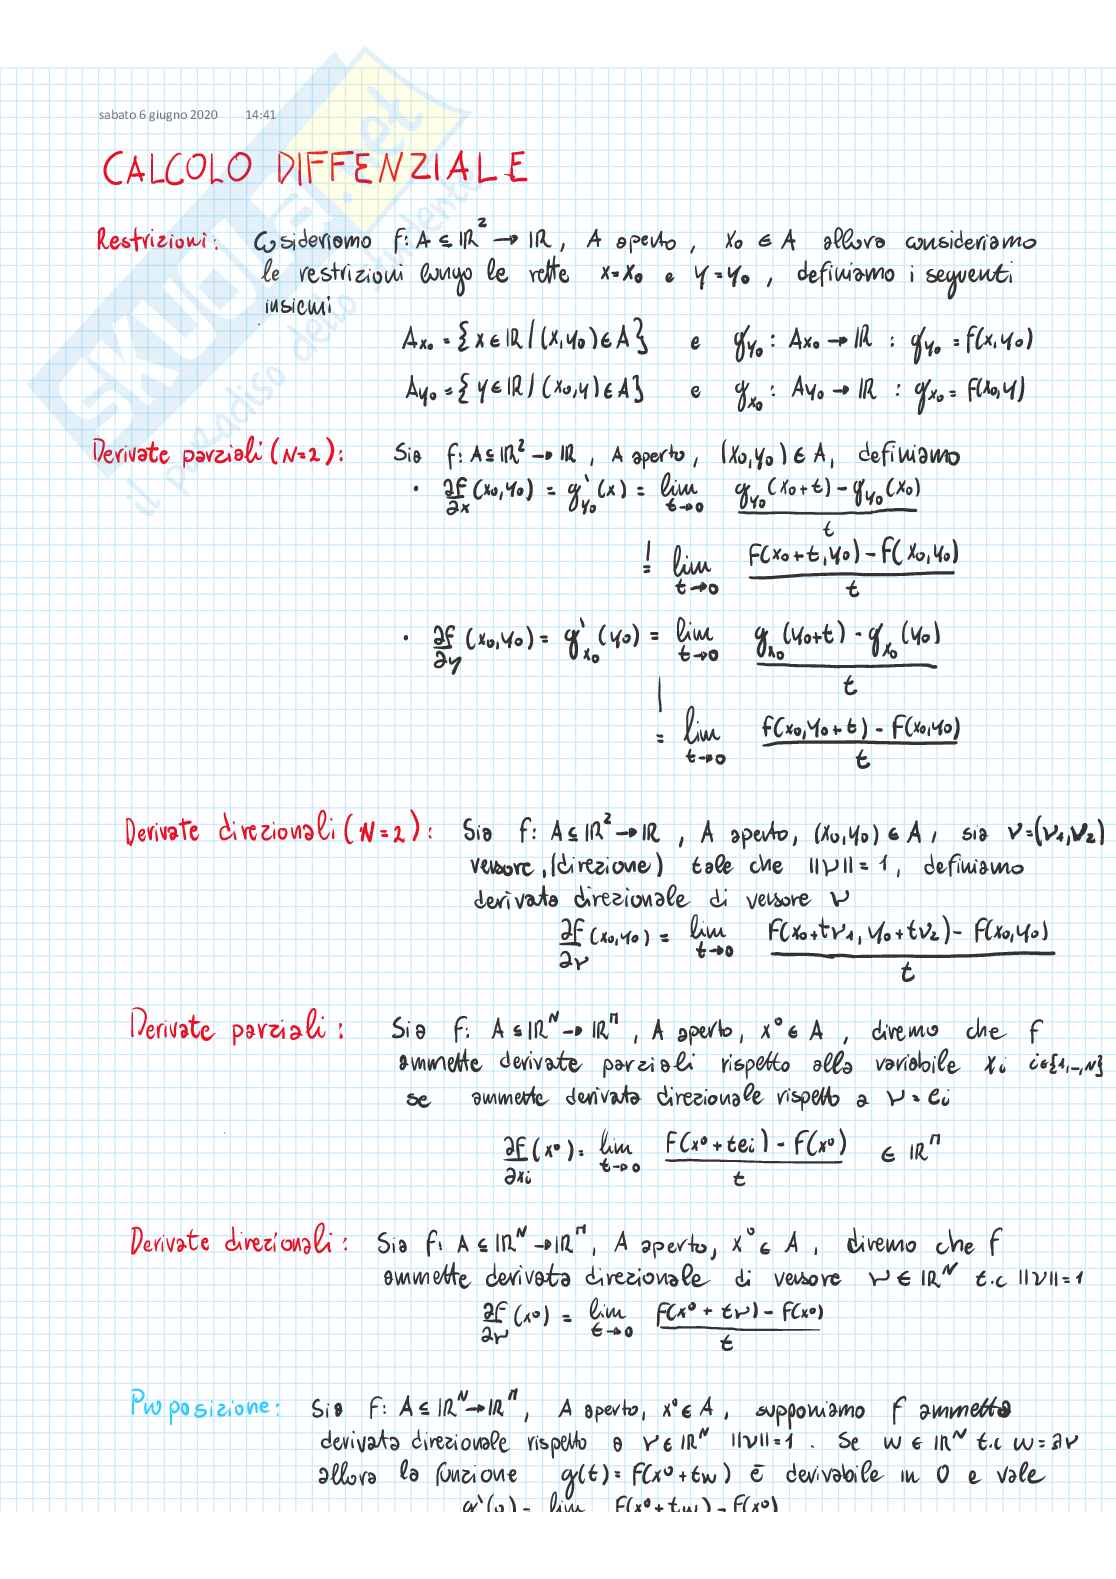 sabato 6 giugno 2020 14:41
CALCOLO DIFFENZIALE
Restrizioni: Cosideriamo f: A ⊆ ℝ² → ℝ, A aperto, x₀ ∈ A allora consideriamo
le restrizioni lungo le rette x=x₀ e y=y₀, definiamo i seguenti
insiemi
Ax₀ = {x∈ℝ / (x,y₀)∈A} e g_y₀ : Ax₀ → ℝ : g_y₀ = f(x,y₀)
Ay₀ = {y∈ℝ / (x₀,y)∈A} e g_x₀ : Ay₀ → ℝ : g_x₀ = f(x₀,y)
Derivate parziali (N=2): Sia f: A⊆ℝ² → ℝ, A aperto, (x₀,y₀) ∈ A, definiamo
· ∂f/∂x (x₀,y₀) = g'_y₀ (x) = lim t→0 (g_y₀(x₀+t) - g_y₀(x₀))/t
= lim t→0 (f(x₀+t,y₀) - f(x₀,y₀))/t
· ∂f/∂y (x₀,y₀) = g'_x₀ (y₀) = lim t→0 (g_x₀(y₀+t) - g_x₀(y₀))/t
= lim t→0 (f(x₀,y₀+t) - f(x₀,y₀))/t
Derivate direzionali (N=2): Sia f: A⊆ℝ² → ℝ, A aperto, (x₀,y₀) ∈ A, sia ν=(ν₁,ν₂)
versore, (direzione) tale che ||ν|| = 1, definiamo
derivata direzionale di versore ν
∂f/∂ν (x₀,y₀) = lim t→0 (f(x₀+tν₁, y₀+tν₂) - f(x₀,y₀))/t
Derivate parziali: Sia f: A⊆ℝᴺ → ℝᴹ, A aperto, x⁰ ∈ A, diremo che f
ammette derivate parziali rispetto alla variabile xᵢ i∈{1,-,N}
se ammette derivata direzionale rispetto a ν = eᵢ
∂f/∂xᵢ (x⁰) = lim t→0 (f(x⁰+teᵢ) - f(x⁰))/t ∈ ℝᴹ
Derivate direzionali: Sia f: A⊆ℝᴺ → ℝᴹ, A aperto, x⁰ ∈ A, diremo che f
ammette derivata direzionale di versore ν ∈ ℝᴺ t.c ||ν||=1
∂f/∂ν (x⁰) = lim t→0 (f(x⁰ + tν) - f(x⁰))/t
Proposizione: Sia f: A⊆ℝᴺ → ℝᴹ, A aperto, x⁰ ∈ A, supponiamo f ammetta
derivata direzionale rispetto a ν∈ℝᴺ ||ν||=1. Se w ∈ ℝᴺ t.c w=aν
allora la funzione g(t) = f(x⁰+tw) è derivabile in 0 e vale
g'(0) = lim f(x⁰+tw) - f(x⁰)
SKUOLA.net
il paradiso dello studente